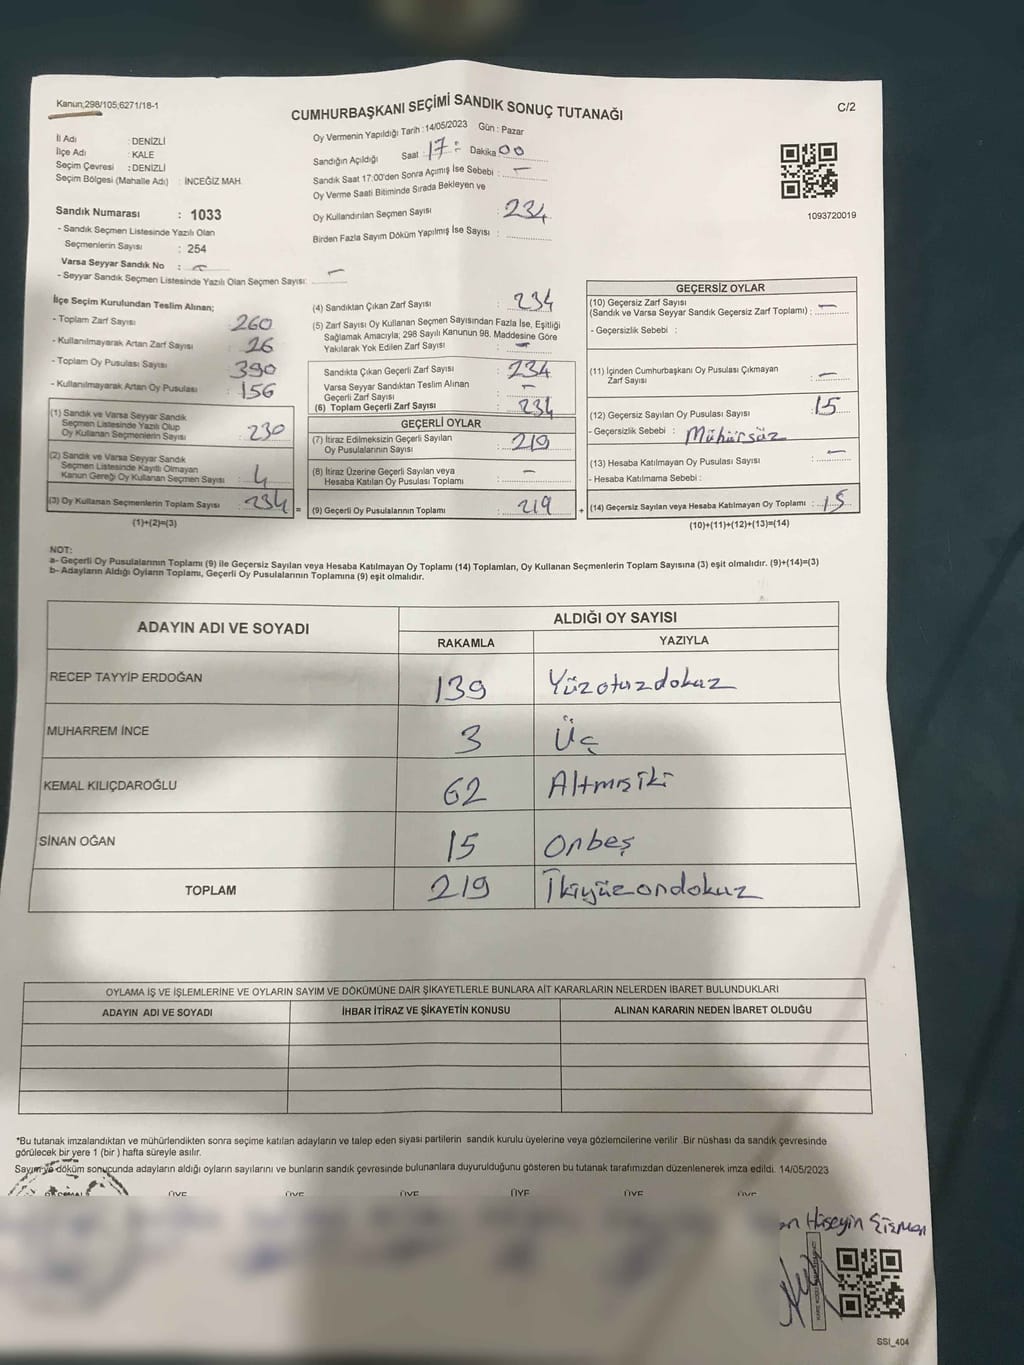 Kanun;298/105;6271/18-1
CUMHURBAŞKANI SEÇİMİ SANDIK SONUÇ TUTANAĞI
C/2
İl Adı : DENİZLİ
İlçe Adı : KALE
Seçim Çevresi : DENİZLİ
Seçim Bölgesi (Mahalle Adı) : İNCEĞİZ MAH.
Sandık Numarası : 1033
- Sandık Seçmen Listesinde Yazılı Olan
Seçmenlerin Sayısı : 254
Varsa Seyyar Sandık No : -
- Seyyar Sandık Seçmen Listesinde Yazılı Olan Seçmen Sayısı: -
Oy Vermenin Yapıldığı Tarih : 14/05/2023 Gün : Pazar
Sandığın Açıldığı Saat : 17 : Dakika 00
Sandık Saat 17:00'den Sonra Açımış İse Sebebi : -
Oy Verme Saati Bitiminde Sırada Bekleyen ve
Oy Kullandırılan Seçmen Sayısı : 234
Birden Fazla Sayım Döküm Yapılmış İse Sayısı :
1093720019
İlçe Seçim Kurulundan Teslim Alınan;
- Toplam Zarf Sayısı : 260
- Kullanılmayarak Artan Zarf Sayısı : 26
- Toplam Oy Pusulası Sayısı : 390
- Kullanılmayarak Artan Oy Pusulası : 156
(1) Sandık ve Varsa Seyyar Sandık
Seçmen Listesinde Yazılı Olup
Oy Kullanan Seçmenlerin Sayısı : 230
(2) Sandık ve Varsa Seyyar Sandık
Seçmen Listesinde Kayıtlı Olmayan
Kanun Gereği Oy Kullanan Seçmen Sayısı : 4
(3) Oy Kullanan Seçmenlerin Toplam Sayısı : 234 =
(1)+(2)=(3)
(4) Sandıktan Çıkan Zarf Sayısı : 234
(5) Zarf Sayısı Oy Kullanan Seçmen Sayısından Fazla İse, Eşitliği
Sağlamak Amacıyla; 298 Sayılı Kanunun 98. Maddesine Göre
Yakılarak Yok Edilen Zarf Sayısı : -
Sandıkta Çıkan Geçerli Zarf Sayısı : 234
Varsa Seyyar Sandıktan Teslim Alınan
Geçerli Zarf Sayısı : -
(6) Toplam Geçerli Zarf Sayısı : 234
GEÇERLİ OYLAR
(7) İtiraz Edilmeksizin Geçerli Sayılan
Oy Pusulalarının Sayısı : 219
(8) İtiraz Üzerine Geçerli Sayılan veya
Hesaba Katılan Oy Pusulası Toplamı : -
(9) Geçerli Oy Pusulalarının Toplamı : 219 +
GEÇERSİZ OYLAR
(10) Geçersiz Zarf Sayısı
(Sandık ve Varsa Seyyar Sandık Geçersiz Zarf Toplamı) : -
- Geçersizlik Sebebi :
(11) İçinden Cumhurbaşkanı Oy Pusulası Çıkmayan
Zarf Sayısı : -
(12) Geçersiz Sayılan Oy Pusulası Sayısı : 15
- Geçersizlik Sebebi : Mühürsüz
(13) Hesaba Katılmayan Oy Pusulası Sayısı : -
- Hesaba Katılmama Sebebi :
(14) Geçersiz Sayılan veya Hesaba Katılmayan Oy Toplamı : 15
(10)+(11)+(12)+(13)=(14)
NOT:
a- Geçerli Oy Pusulalarının Toplamı (9) ile Geçersiz Sayılan veya Hesaba Katılmayan Oy Toplamı (14) Toplamları, Oy Kullanan Seçmenlerin Toplam Sayısına (3) eşit olmalıdır. (9)+(14)=(3)
b- Adayların Aldığı Oyların Toplamı, Geçerli Oy Pusulalarının Toplamına (9) eşit olmalıdır.
ADAYIN ADI VE SOYADI
ALDIĞI OY SAYISI
RAKAMLA YAZIYLA
RECEP TAYYİP ERDOĞAN 139 Yüzotuzdokuz
MUHARREM İNCE 3 Üç
KEMAL KILIÇDAROĞLU 62 Altmışiki
SİNAN OĞAN 15 Onbeş
TOPLAM 219 İkiyüzondokuz
OYLAMA İŞ VE İŞLEMLERİNE VE OYLARIN SAYIM VE DÖKÜMÜNE DAİR ŞİKAYETLERLE BUNLARA AİT KARARLARIN NELERDEN İBARET BULUNDUKLARI
ADAYIN ADI VE SOYADI İHBAR İTİRAZ VE ŞİKAYETİN KONUSU ALINAN KARARIN NEDEN İBARET OLDUĞU
*Bu tutanak imzalandıktan ve mühürlendikten sonra seçime katılan adayların ve talep eden siyasi partilerin sandık kurulu üyelerine veya gözlemcilerine verilir .Bir nüshası da sandık çevresinde
görülecek bir yere 1 (bir ) hafta süreyle asılır.
Sayım ve döküm sonucunda adayların aldığı oyların sayılarını ve bunların sandık çevresinde bulunanlara duyurulduğunu gösteren bu tutanak tarafımızdan düzenlenerek imza edildi. 14/05/2023
ÜYE ÜYE ÜYE ÜYE ÜYE ÜYE
Hüseyin
SSI_404